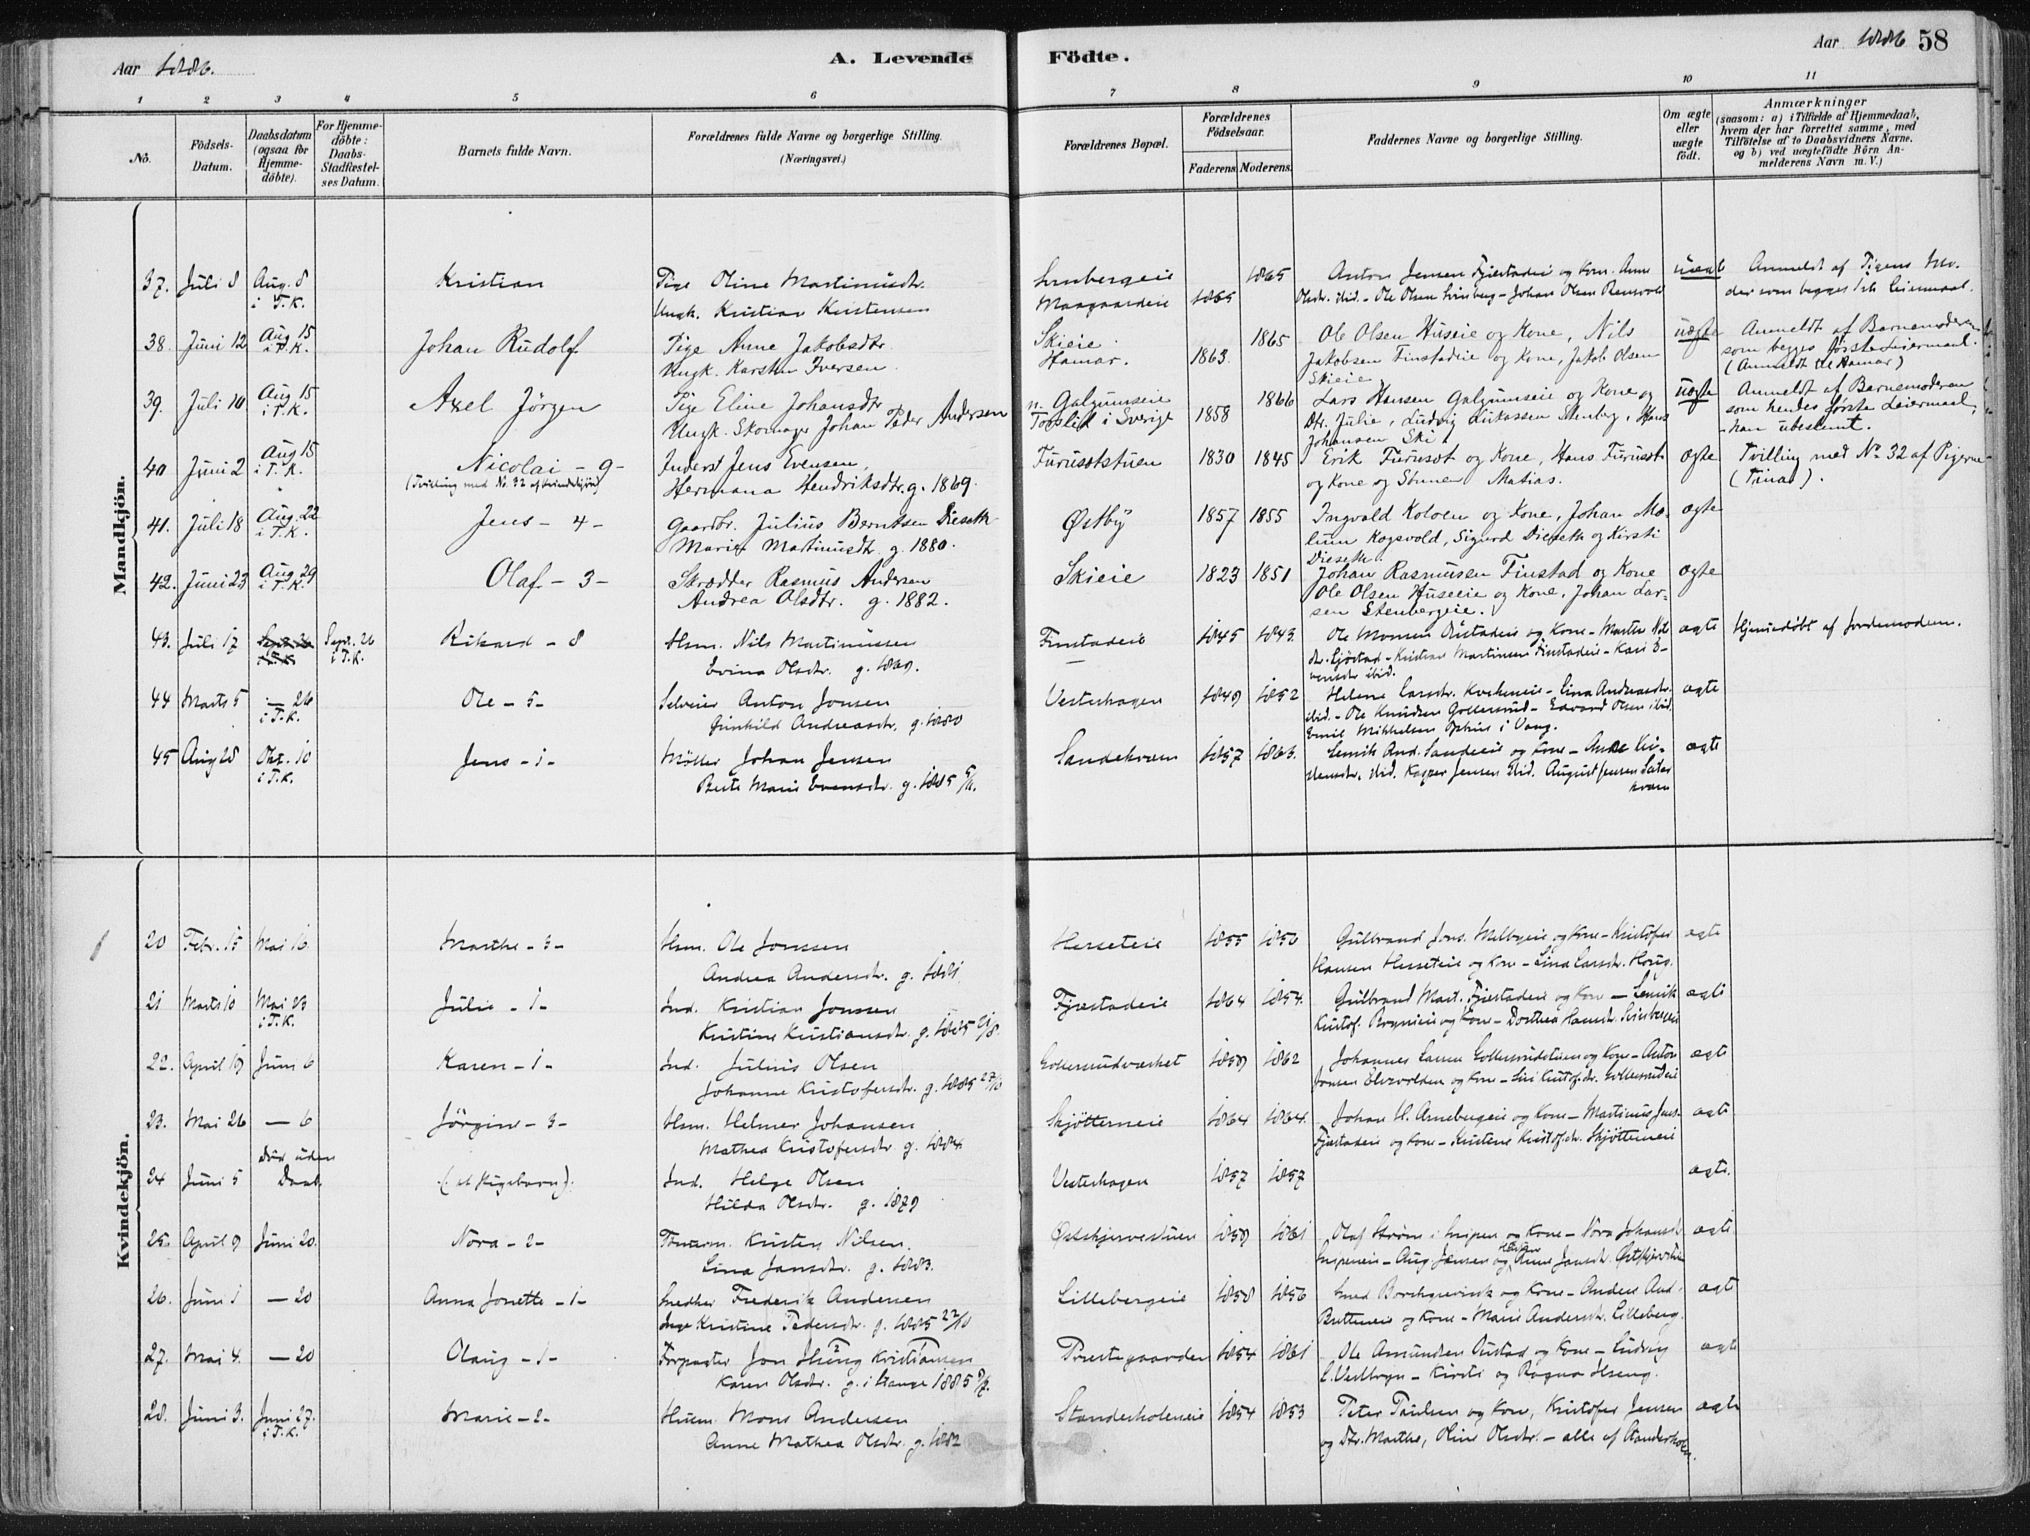 Aar 1886.
A. Levende Födte.
Aar 1886 58
1 2 3 4 5 6 7 8 9 10 11
No.
Födsels-Datum.
Daabsdatum (ogsaa for Hjemme-döbte).
For Hjemme-döbte: Daabs-Stadfæstel-ses Datum.
Barnets fulde Navn.
Forældrenes fulde Navne og borgerlige Stilling.
(Næringsvei.)
Forældrenes Bopæl.
Forældrenes Födselsaar.
Faderens Moderens.
Faddernes Navne og borgerlige Stilling.
Om ægte eller uægte födt.
Anmærkninger
(saasom: a) i Tilfælde af Hjemmedaab,
hvem der har forrettet samme, med
Tilföielse af to Daabsvidners Navne.
og b) ved uægtefödte Börn An-
melderens Navn m. V.)
Mandkjön.
37. Juli 8 Aug. 8 i T.K. Kristian
Pige Oline Martinusdtr.
Ungk. Kristian Kristensen
Maagaardeie 1865 1865
Anton Jensen Fjæstadeie og Kone. Anne
Olsdr. ibid. - Ole Olsen - Johan Olsen
uægte
Anmeldt af Pigens Mo-
der som begges 1ste Leiermaal.
38. Juni 12 Aug 15 i T.K. Johan Rudolf
Pige Anne Jakobsdtr.
Ungk. Karsten Iversen.
Skieie.
Hamar. 1863. 1865
Ole Olsen Huseie og Kone, Nils
Jakobsen Finstadeie og Kone, Jakob Olsen
Skieie
uægte
Anmeldt af Barnemoderen
som begges første Leiermaal.
(Anmeldt til Hamar)
39. Juli 10 Aug 15 i T.K. Axel Jörgen
Pige Eline Johansdtr
Ungk. Skomager Johan Peder Andersen
n. Galgumseie
i Sverige 1858 1866
Lars Hansen Galgumseie og Kone og
Dtr. Julie, Ludvig Lukassen Stenberg, Hans
Johansen Ski
uægte
Anmeldt af Barnemoderen
som hendes første Leiermaal,
han ubestemt.
40 Juni 2 Aug 15 i T.K. Nicolai - 9 -
(Tvilling med No. 32 af Kvindekjön)
Inderst Jens Evensen,
Hermana Hendriksdtr. g. 1869.
Furusetstuen 1830 1845
Erik Furuset og Kone, Hans Furuset
og Kone og Sönnen Matias.
ægte
Tvilling med No 32 af Pigerne
(Trina).
41. Juli 18 Aug. 22 i T.K. Jens - 4 -
Gaardbr. Julius Berntsen Dieseth
Marie Martinusdtr. g. 1880.
Østby 1857 1855
Ingvald Koloen og Kone, Johan Mæ-
lum Kogsvold, Sigurd Dieseth og Kirsti
Dieseth.
ægte
42. Juni 23 Aug. 29 i T.K. Olaf - 3 -
Skrædder Rasmus Andersen
Andrea Olsdtr. g. 1882.
Skieie 1823 1851
Johan Rasmussen Finstad og Kone
Ole Olsen Huseeie og Kone, Johan Lar-
sen Stenbergeie.
ægte
43. Juli 17 Sept. 26 i T.K. Rikard - 8
Hsm. Nils Martinussen
Evina Olsdtr. g. 1869.
Finstadeie 1845 1843.
Ole Monsen og Kone - Marthe Nils-
dr. - Kristian Martinsen Finstadeie - Kari E-
vensdr ibid.
ægte
Hjemmedöbt af Jordemoderen.
44 Marts 5 — 26 i T.K. Ole - 5 -
Selveier Anton Jonsen
Gunhild Andreasdtr. g. 1880
Vesterhagen 1849 1852
Helene Larsdr. - Lina Andreasdr.
ibid. - Ole Knudsen Gollersrud - Edvard Olsen ibid.
Emil Mikkelsen Ophus i Vang.
ægte
45 Aug 28 Okt. 10 i T.K. Jens - 1 -
Møller Johan Jensen
Berte Marie Evensdr. g. 1885 5/11.
Sandekvern 1857 1863.
Lenik And. Sandeeie og Kone -
ibid. Kasper Jensen ibid. August Jensen
ægte
Kvindekjön.
20 Febr. 15 Mai 16 Marthe - 3 -
Hsm. Ole Jonssen
Andrea Andersdr. g. 1881.
Herseteie 1855 1850
Gulbrand Jons. Melbyeie og Kone - Kristofer
Hansen Herseteie og Kone - Lina Larsdr. Haug.
ægte
21 Marts 10 Mai 23 i T.K. Julie - 1 -
Ind. Kristian Jonssen
Kristine Kristiansdr. g. 1885
Fjæstadeie 1864 1854.
Gulbrand Mart. Fjæstadeie og Kone — Lenik
Kristof. og Kone - Dorthea Hansdr.
ægte
22. April 19 Juni 6 Karen - 1 -
Ind. Julius Olsen
Johanne Kristofersdr. g. 1885
Gollersrudværket 1859 1862
Johannes Larsen Gollersrudstuen og Kone - Anton
Jonsen og Kone - Siri Kristofsdr. Gollersrudeie
ægte
23. Mai 26 — 6 Jörgine - 3 -
Hsm. Helmer Johansen
Mathea Kristofersdr. g. 1884.
Skjötterneie 1864 1864.
Johan H. Arnebergeie og Kone - Martinus Jens.
Fjæstadeie og Kone - Kristine Kristofsdr. Skjötterneie
ægte
24 Juni 5 Död uden Daab. (et Pigebarn).
Ind. Helge Olsen
Hilda Olsdtr. g. 1879
Vesterhagen 1857 1857
ægte.
25. April 9 Juni 20. Nora - 2 -
Kristen Nilsen
Lina Jansdtr. g. 1883.
Østskjervestuen 1859 1861
Olaf Strøm i Snipen og Kone - Nora Johansdr.
Snipeneie - Aug. Jensen og Anne Jansdr. Østskjervestuen
ægte
26. Juni 1 — 20 Anna Jonette - 1 -
Snedker Frederik Andersen
Inge Kristine Pedersdtr. g. 1885 22/10
Lillebergeie 1858 1856
Smed og Kone - Anders And.
og Kone - Marie Andersdr. Lilleberg.
ægte
27. Mai 4. — 20 Olaug - 1 -
Forpagter Jon Hseng Kristiansen
Karen Olsdtr. g. i Stange 1885
Præstegaarden 1854 1861
Ole Amundsen Austad og Kone - Ludvig
E. Vestbryn - Kirsti og Ragna Hseng.
ægte
28. Juni 3. Juni 27. i T.K. Marie - 2 -
Husm. Mons Andersen
Anne Mathea Olsdtr. g. 1882
Standerholeneie 1854 1853
Peter Paulsen og Kone, Kristofer Jensen
og Dtr. Marthe, Oline Olsdtr. - alle af Standerholen.
ægte